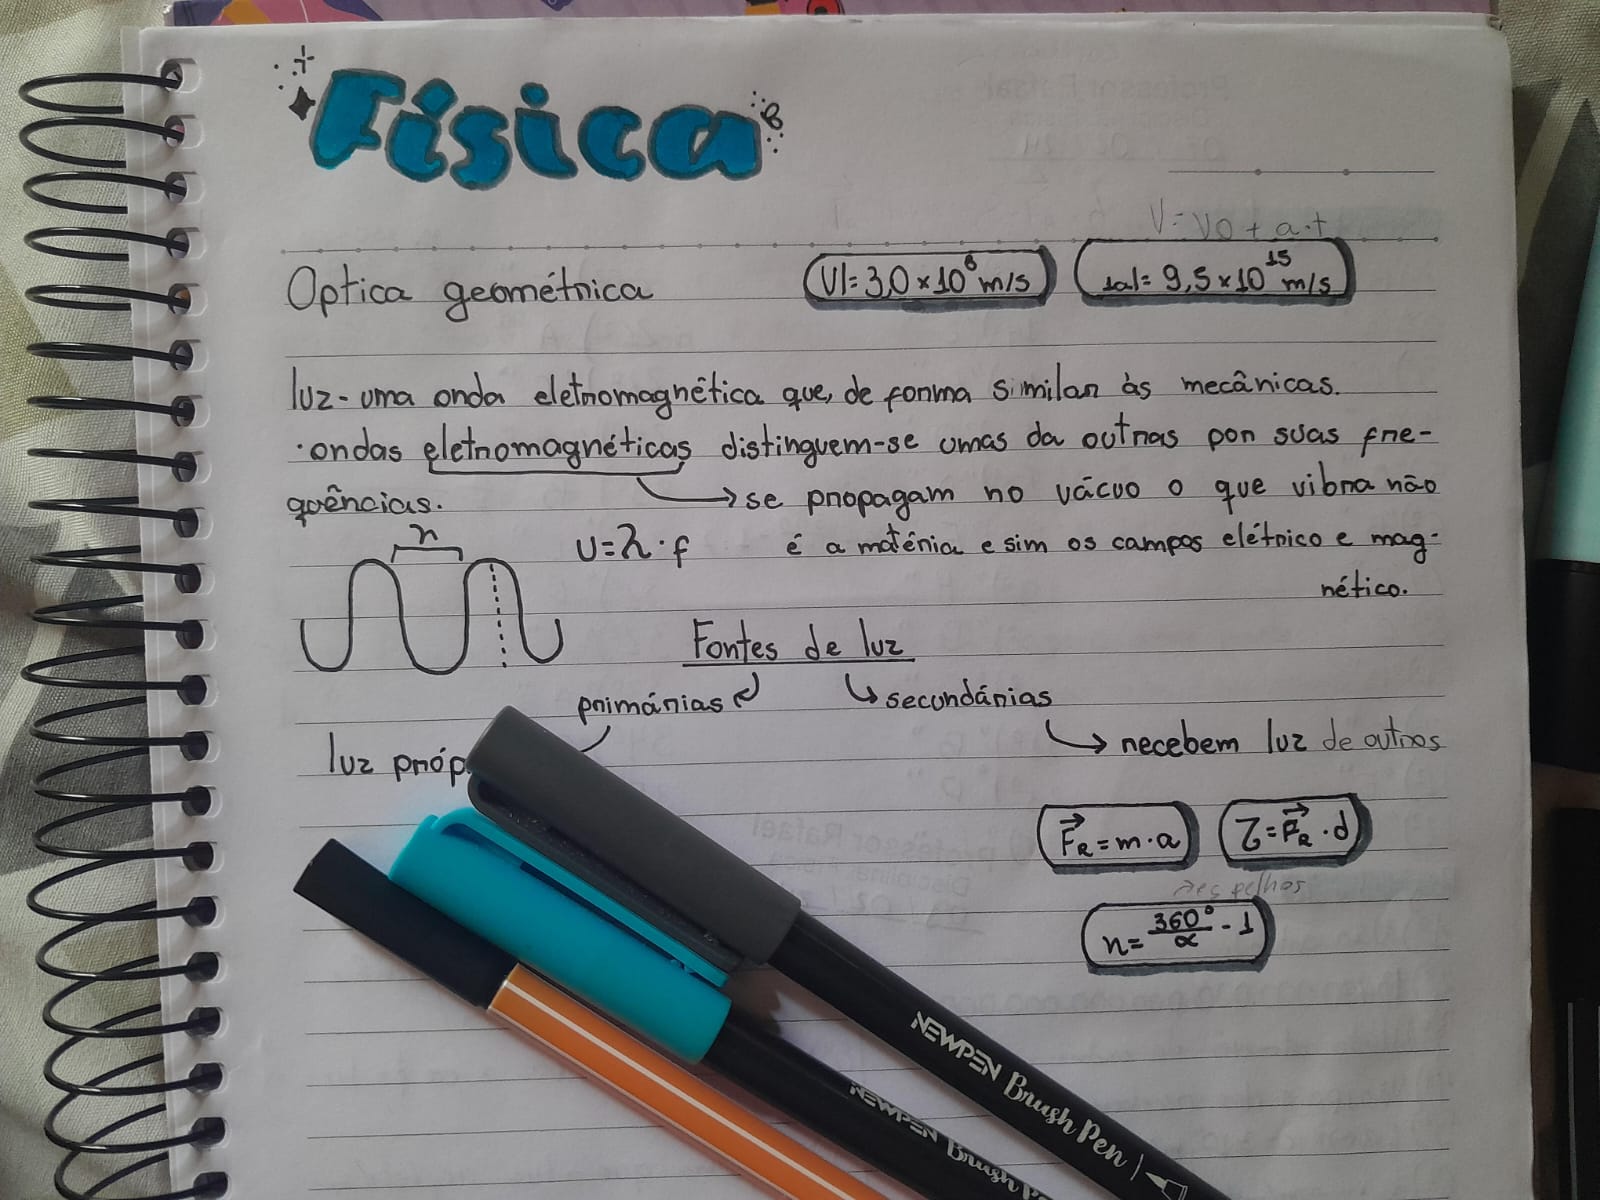 Física
V = V0 + a.t
Optica geométrica
Vl = 3,0 × 10⁸ m/s
1al = 9,5 × 10¹⁵ m/s
luz - uma onda eletromagnética que, de forma similar às mecânicas.
· ondas eletromagnéticas distinguem-se umas da outras por suas fre-
quências.
→ se propagam no vácuo o que vibra não
é a matéria e sim os campos elétrico e mag-
nético.
λ
υ = λ · f
Fontes de luz
primárias
secundárias
→ recebem luz de outros
luz próp
F⃗R = m · a
τ = F⃗R · d
→ espelhos
n = 360°/α - 1
NEWPEN Brush Pen
NEWPEN Brush